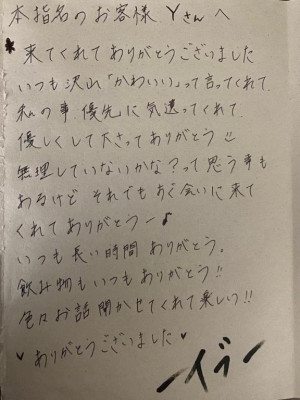 本指名のお客様 Yさんへ
* 来てくれてありがとうございました
いつも沢山「かわいい」って言ってくれて
私の事優先に気遣ってくれて
優しくして下さってありがとう!!
無理していないかな?って思う事も
あるけど それでも 会いに来て
くれてありがとうー♪
いつも長い時間ありがとう。
飲み物もいつもありがとう!!
色々お話聞かせてくれて楽しい!!
♥ ありがとうございました ♥
ーイヴー